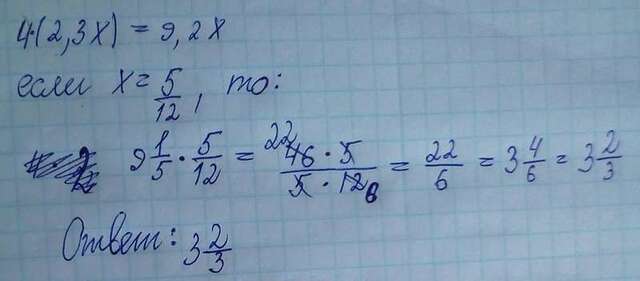 4·(2,3x) = 9,2x
если x = 5/12, то:
9 1/5 · 5/12 = 46 · 5 / 5 · 12 = 22/6 = 3 4/6 = 3 2/3
22
6
Ответ: 3 2/3